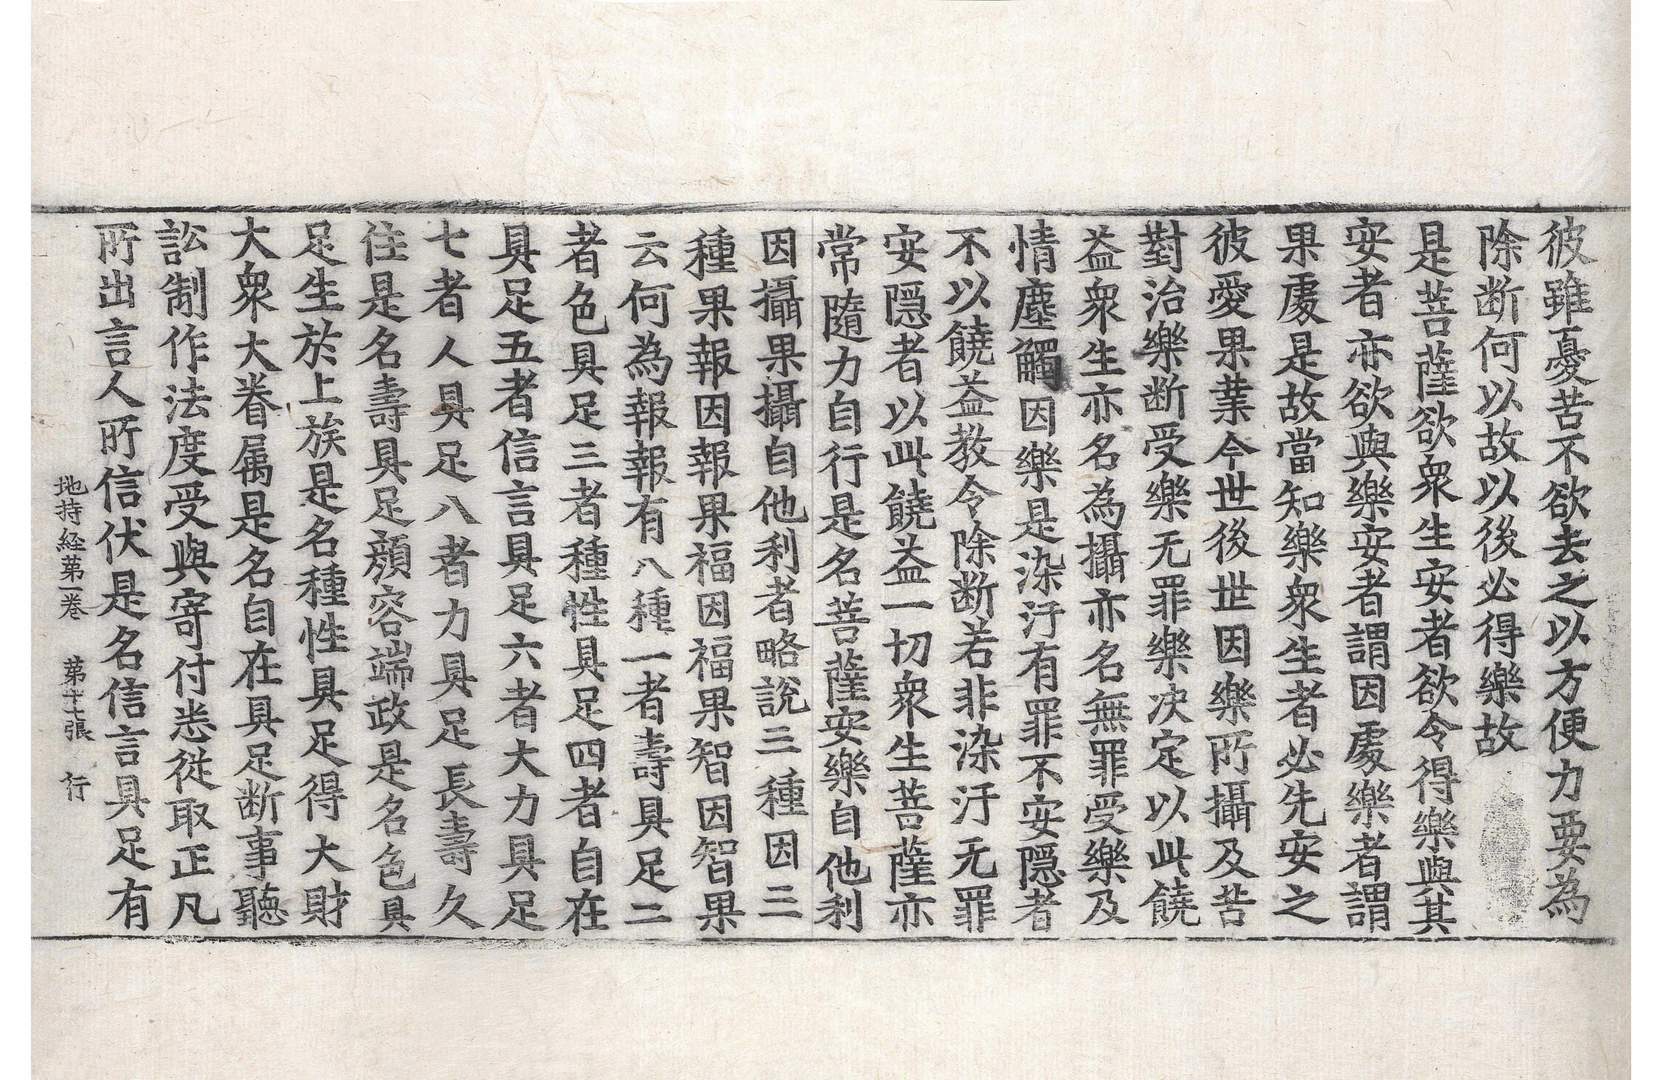 彼雖憂苦不欲去之以方便力要為
除断何以故以後必得樂故
是菩薩欲衆生安者欲令得樂與其
安者亦欲與樂安者謂因處樂者謂
果處是故當知樂衆生者必先安之
彼愛果業今世後世因樂所攝及苦
對治樂断受樂无罪樂决定以此饒
益衆生亦名為攝亦名無罪受樂及
情塵觸因樂是染汙有罪不安隱者
不以饒益教令除断若非染汙无罪
安隱者以此饒益一切衆生菩薩亦
常隨力自行是名菩薩安樂自他利
因攝果攝自他利者略說三種因三
種果報因報果福因福果智因智果
云何為報報有八種一者壽具足二
者色具足三者種性具足四者自在
具足五者信言具足六者大力具足
七者人具足八者力具足長壽久
住是名壽具足顔容端政是名色具
足生於上族是名種性具足得大財
大衆大眷属是名自在具足断事聽
訟制作法度受與寄付悉從取正凡
所出言人所信伏是名信言具足有
地持経第一卷 第十七張 行